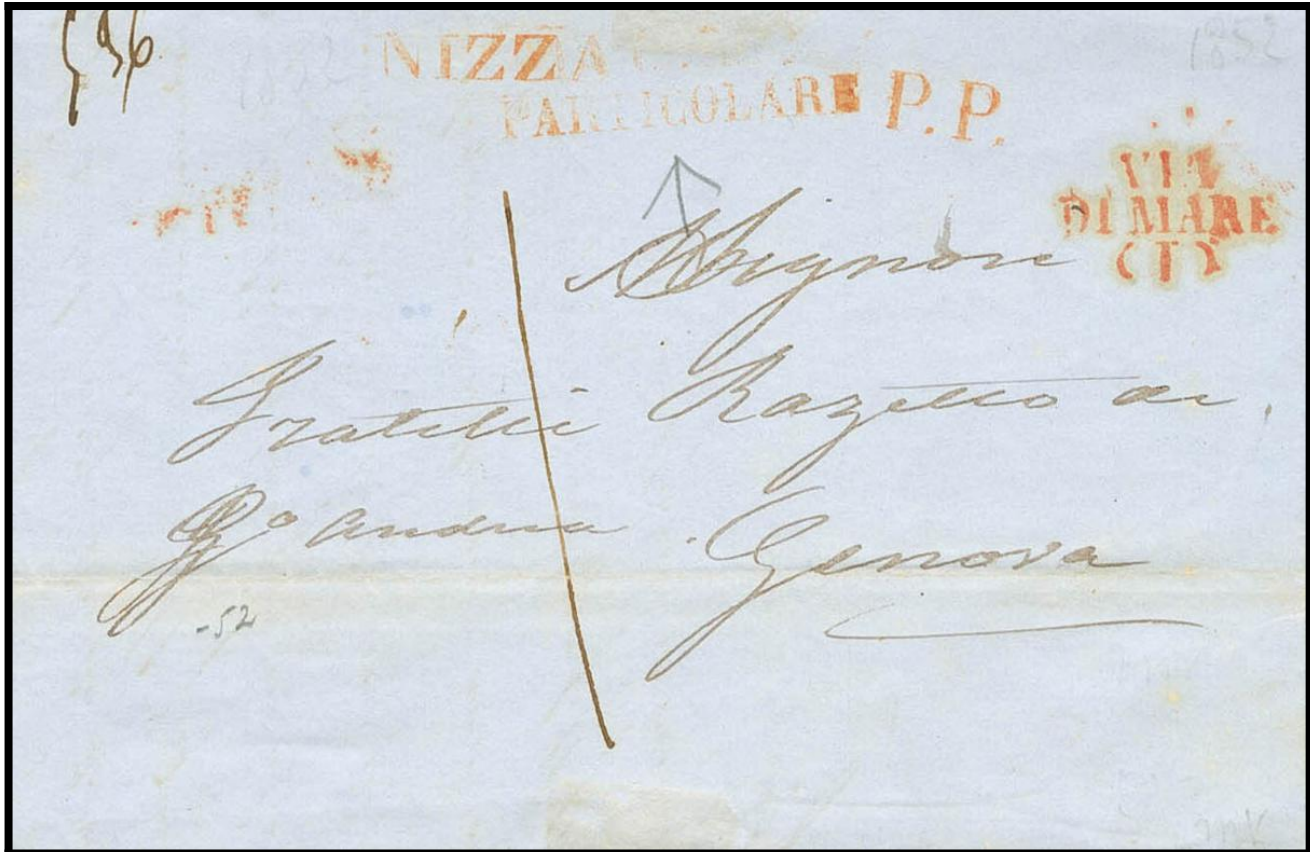 1852
NIZZA
PARTICOLARE P.P.
VIA
DI MARE
(I)
Signori
Fratelli Razetto
Andrea Genova
-52